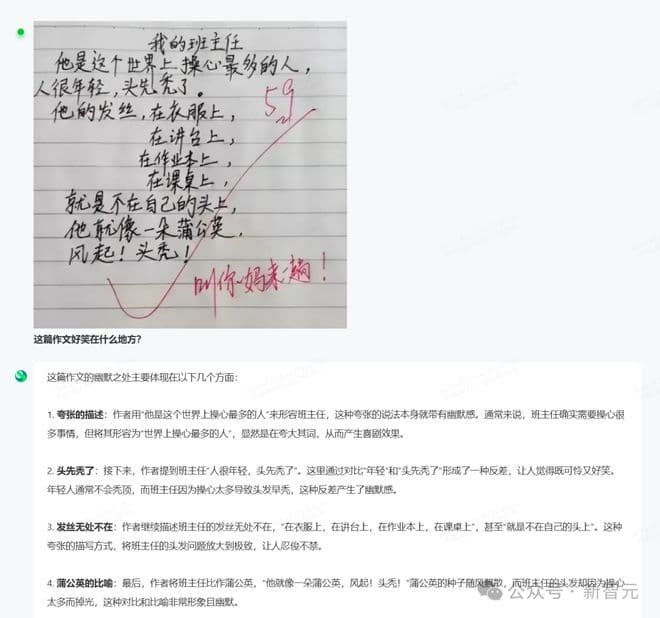 我的班主任
他是这个世界上操心最多的人，
人很年轻，头先秃了。
他的发丝，在衣服上，
59
在讲台上，
在作业本上，
在课桌上，
就是不在自己的头上，
他就像一朵蒲公英，
风起！头秃！
叫你妈来一趟！
这篇作文好笑在什么地方？
这篇作文的幽默之处主要体现在以下几个方面：
1. 夸张的描述：作者用“他是这个世界上操心最多的人”来形容班主任，这种夸张的说法本身就带有幽默感。通常来说，班主任确实需要操心很
多事情，但将其形容为“世界上操心最多的人”，显然是在夸大其词，从而产生喜剧效果。
2. 头先秃了：接下来，作者提到班主任“人很年轻，头先秃了”。这里通过对比“年轻”和“头先秃了”形成了一种反差，让人觉得既可怜又好笑。
年轻人通常不会秃顶，而班主任因为操心太多导致头发早秃，这种反差产生了幽默感。
3. 发丝无处不在：作者继续描述班主任的发丝无处不在，“在衣服上，在讲台上，在作业本上，在课桌上”，甚至“就是不在自己的头上”。这种
夸张的描写方式，将班主任的头发问题放大到极致，让人忍俊不禁。
4. 蒲公英的比喻：最后，作者将班主任比作蒲公英，“他就像一朵蒲公英，风起！头秃！”蒲公英的种子随风飘散，而班主任的头发却因为操心
太多而掉光，这种对比和比喻非常形象且幽默。
公众号·新智元